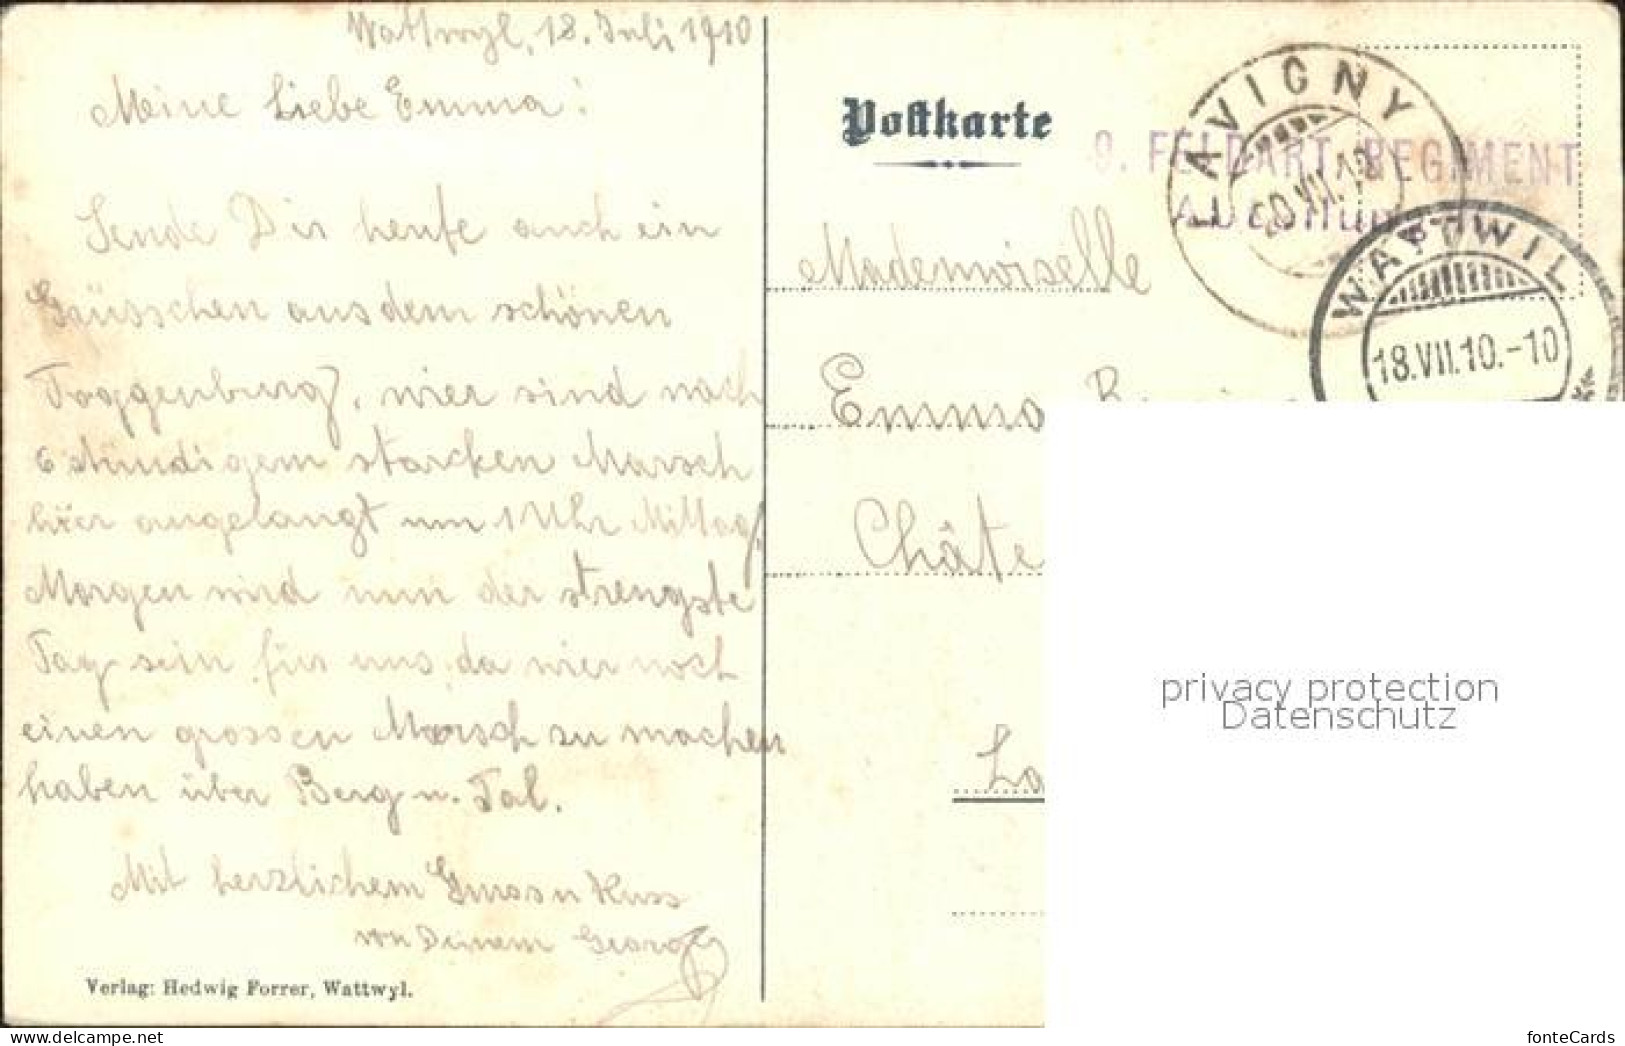 Wattwyl, 18. Juli 1910
Meine Liebe Emma!
Sende Dir heute auch ein
Grüsschen aus dem schönen
Toggenburg, wier sind nach
6 stündigem starcken Marsch
hier angelangt um 1 Uhr Mittag,
Morgen wird nun der strengste
Tag sein für uns, da wier noch
einen grossen Marsch zu machen
haben über Berg u. Tal.
Mit herzlichem Gruss u Kuss
von Deinem George
Verlag: Hedwig Forrer, Wattwyl.
Postkarte
LAVIGNY
9. FELDART. REGIMENT
Abteilung
WATTWIL
18.VII.10.-10
Mademoiselle
Emma
Châte
La
privacy protection
Datenschutz
fonteCards